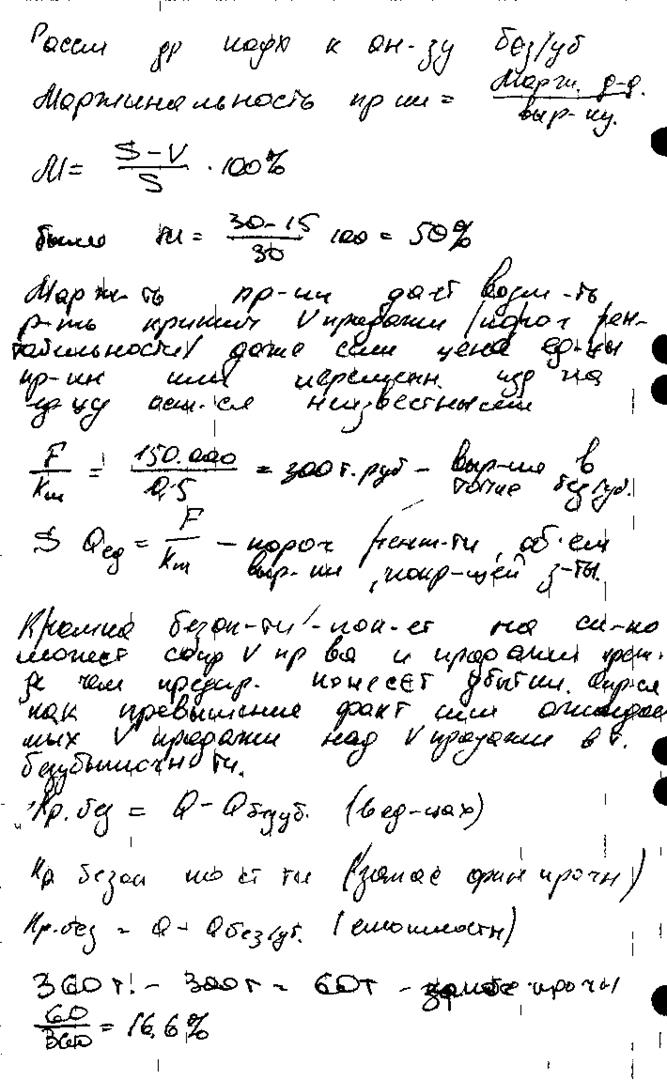 Рассм др подх к ан-зу без/уб
Маржинальность пр-ии = Марж. д-д. / выр-ку.
М = S-V / S · 100%
было m = 30-15 / 30 100 = 50%
Марж-ть пр-ии дает возм-ть
р-ть критич V продажи /порог рен-
табильности/ даже если цена ед-цы
пр-ии или перемен. изд на
ед-цу ост-ся неизвестными
F / Km = 150.000 / 0,5 = 300 т. руб - выр-ка в
точке безуб.
S Qед = F / Km - порог рент-ти, объем
выр-ки, покр-щей з-ты.
Кромка безоп-ти - пок-ет на ск-ко
может сокр V пр-ва и продажи преж-
де чем предпр. понесет убытки. Опр-ся
как превышение факт или ожидае
мых V продажи над V продажи в т.
безубыточности.
Кр. без = Q - Qбезуб. (в ед-цах)
Кр безоп ности (запас фин прочн)
Кр. без = Q - Qбез/уб. (стоимости)
360 т. - 300 т = 60 т - запас прочн
60 / 360 = 16,6%